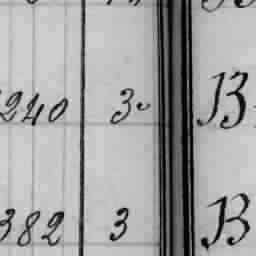 240 3 B
382 3 B